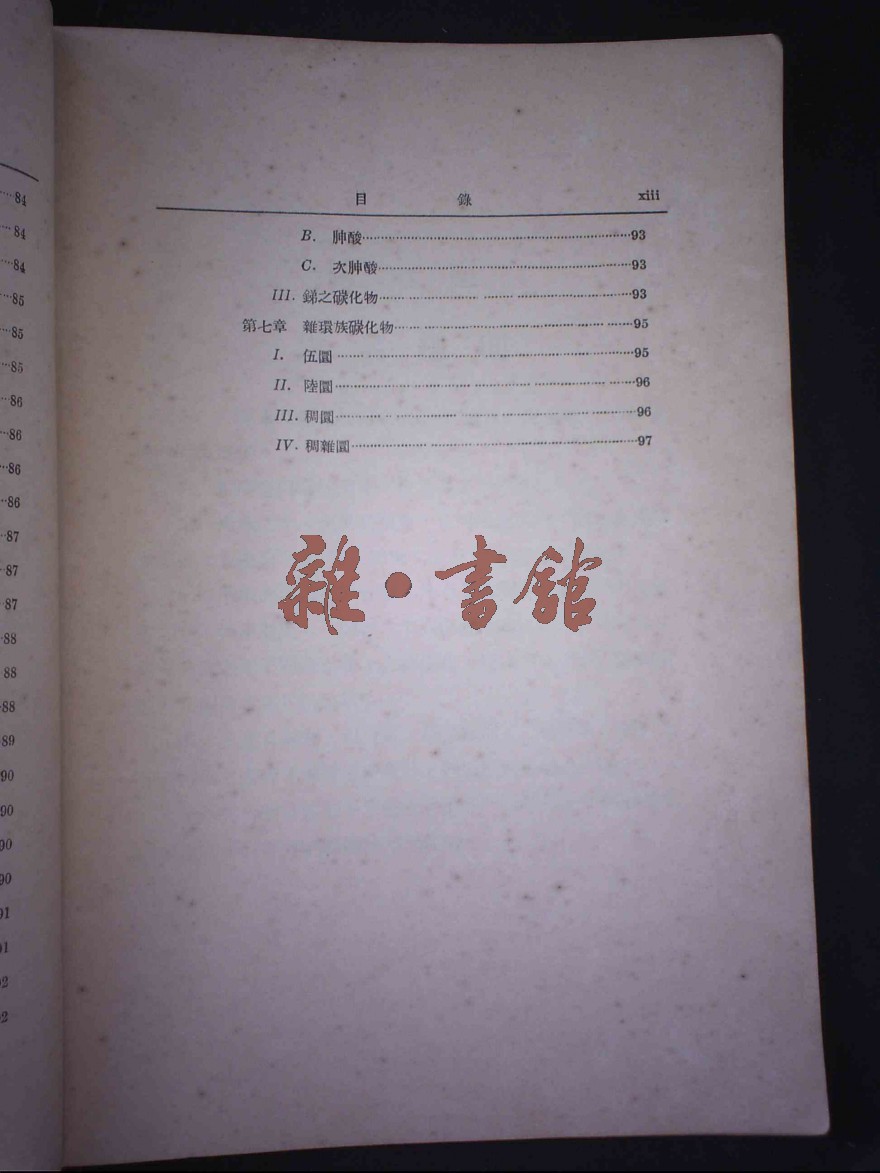 目 錄 xiii
B. 胂酸……93
C. 次胂酸……93
III. 銻之碳化物……93
第七章 雜環族碳化物……95
I. 伍圜……95
II. 陸圜……96
III. 稠圜……96
IV. 稠雜圜……97
雜·書館
84
84
84
85
85
85
86
86
86
86
87
87
87
88
88
88
89
90
90
90
90
91
91
92
92